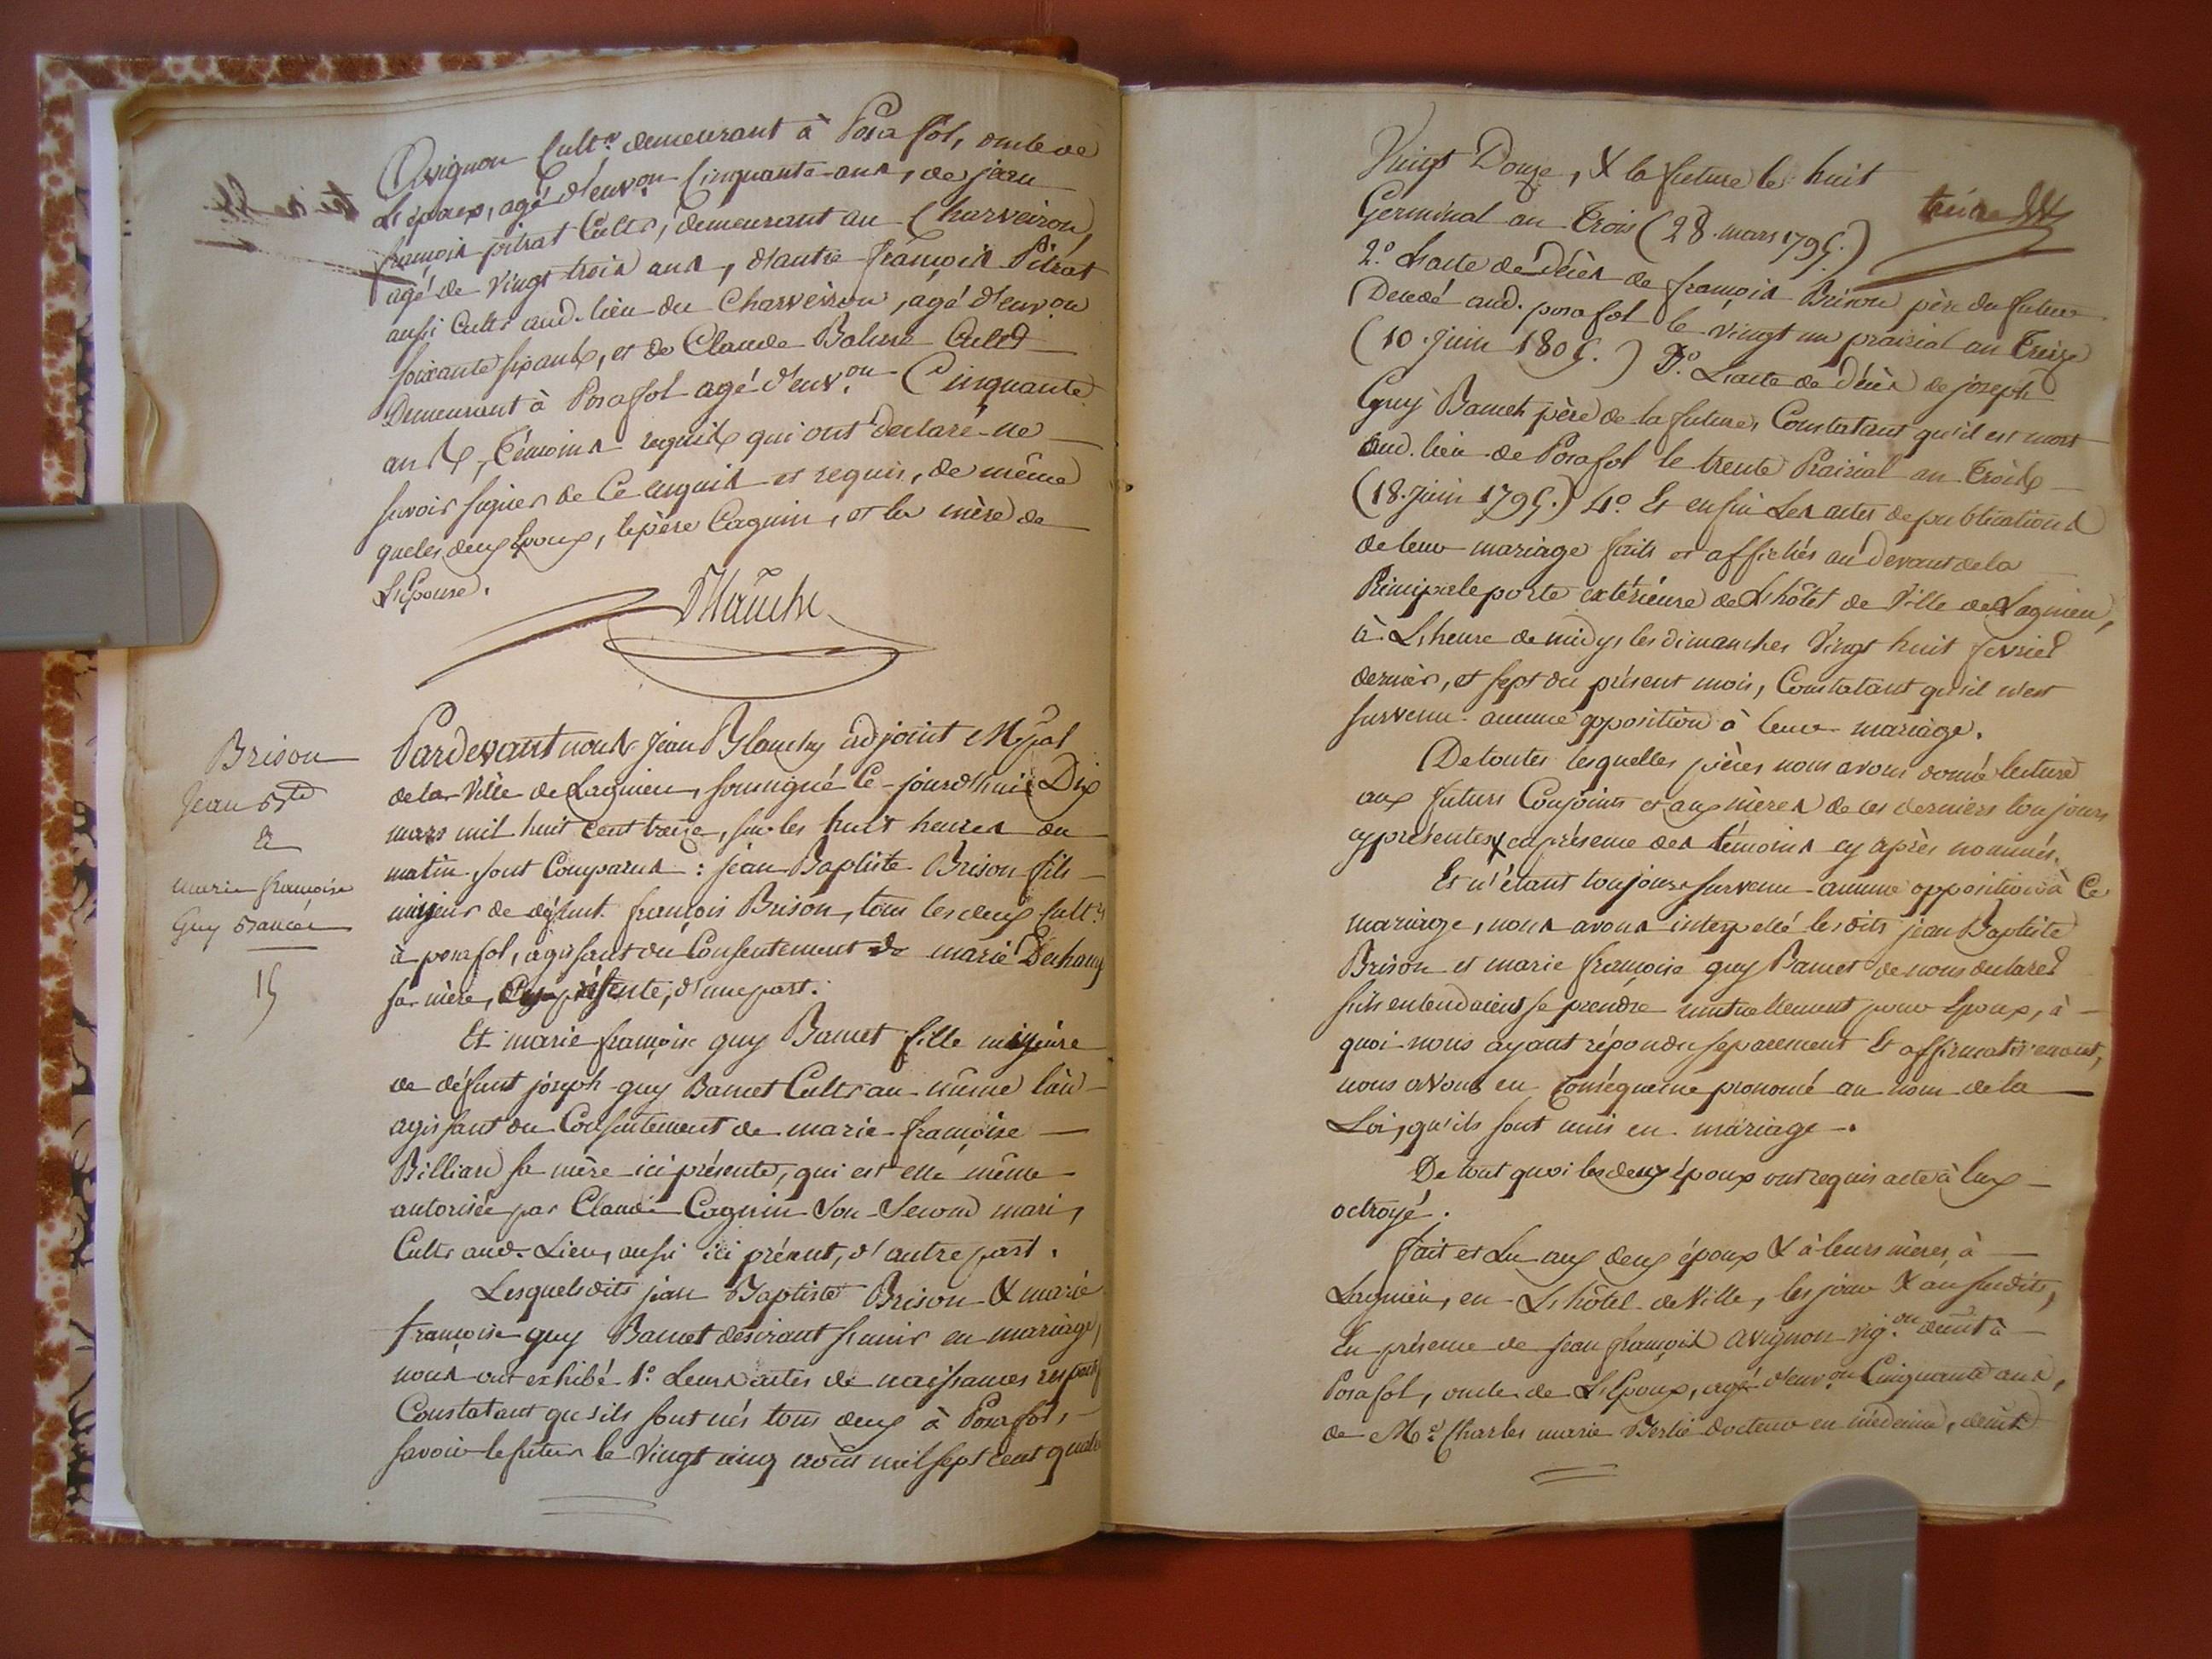 Avignon Cultr. demeurant à Posafol, oncle de
L'Epoux, agé d'envon. Cinquante ans, de jean
françois pitrat Cultr, demeurant au Charveiron,
agé de vingt trois ans, d'autre françois Pitrat
aussi Cultr aud. lieu du Charveiron, agé d'envon
soixante six ans, et de Claude Balme Cultr
Demeurant à Posafol agé d'env.on Cinquante
ans, Témoins requis qui ont déclaré ne
savoir signer de Ce enquis et requis, de même
que les deux Epoux, le père Cagnin, et la mère de
L'Epouse.
Brison
Jean Bte
&
marie françoise
Guy Bancet
15
Pardevant nous Jean adjoint Mpal
de la Ville de Lagnieu, soussigné Ce-jourd'hui Dix
mars mil huit cent treize, sur les huit heures du
matin sont Comparus : jean Baptiste Brison fils
majeur de défunt françois Brison, tous les deux Cultrs
à posafol, agissant du Consentement de marie
sa mère, présente, d'une part.
Et marie françoise guy Bamet fille
de défunt joseph guy Bamet Cultr au même lieu
agissant du Consentement de marie françoise
Billiard sa mère ici présente, qui est elle même
autorisée par Claude Cagnin Son Second mari,
Cultr aud. Lieu, aussi ici présent, d'autre part.
Lesquels dits jean Baptiste Brison & marie
françoise guy Bamet désirant s'unir en mariage,
nous ont exhibé 1.º Leurs actes de naissances
Constatant qu'ils sont nés tous deux à Posafol,
savoir le futur le Vingt cinq mil sept cent quatre
Vingt Douze, & la future le huit
Germinal an Trois (28. mars 1795.)
2.º L'acte de décès de françois Brison père du futur
Décédé aud. posafol le vingt un prairial an Treize
(10. Juin 1805.) 3.º L'acte de décès de joseph
Guy Bamet père de la future, Constatant qu'il est mort
aud. lieu de Posafol le trente Prairial an Trois
(18. Juin 1795.) 4.º Et enfin Les actes de publications
de leur mariage faits et affichés au devant de la
Principale porte extérieure de L'hôtel de Ville de Lagnieu,
à L'heure de midy, les dimanches Vingt huit fevrier
dernier, et sept du présent mois, Constatant qu'il n'est
survenu aucune opposition à leur mariage.
De toutes lesquelles pièces nous avons donné lecture
aux futurs Conjoints et aux mères de ces derniers toujours
cy présentes & en présence des témoins cy après nommés.
Et n'étant toujours survenu aucune opposition à Ce
mariage, nous avons interpellé les dits jean Baptiste
Brison et marie françoise guy Bamet de nous declarer
s'ils entendaient se prendre mutuellement pour Epoux, à
quoi nous ayant répondu séparement Et affirmativement,
nous avons en Conséquence prononcé au nom de la
Loi, qu'ils sont unis en mariage.
De tout quoi les deux époux ont requis acte à Eux
octroyé.
fait et Lu aux deux époux & à leurs mères, à
Lagnieu, en L'hôtel de Ville, les jour & an susdits,
En présence de jean françois Avignon vig.on demt à
Posafol, oncle de L'Epoux, agé d'env.on Cinquante ans,
de Mr. Charles marie docteur en médecine, demt